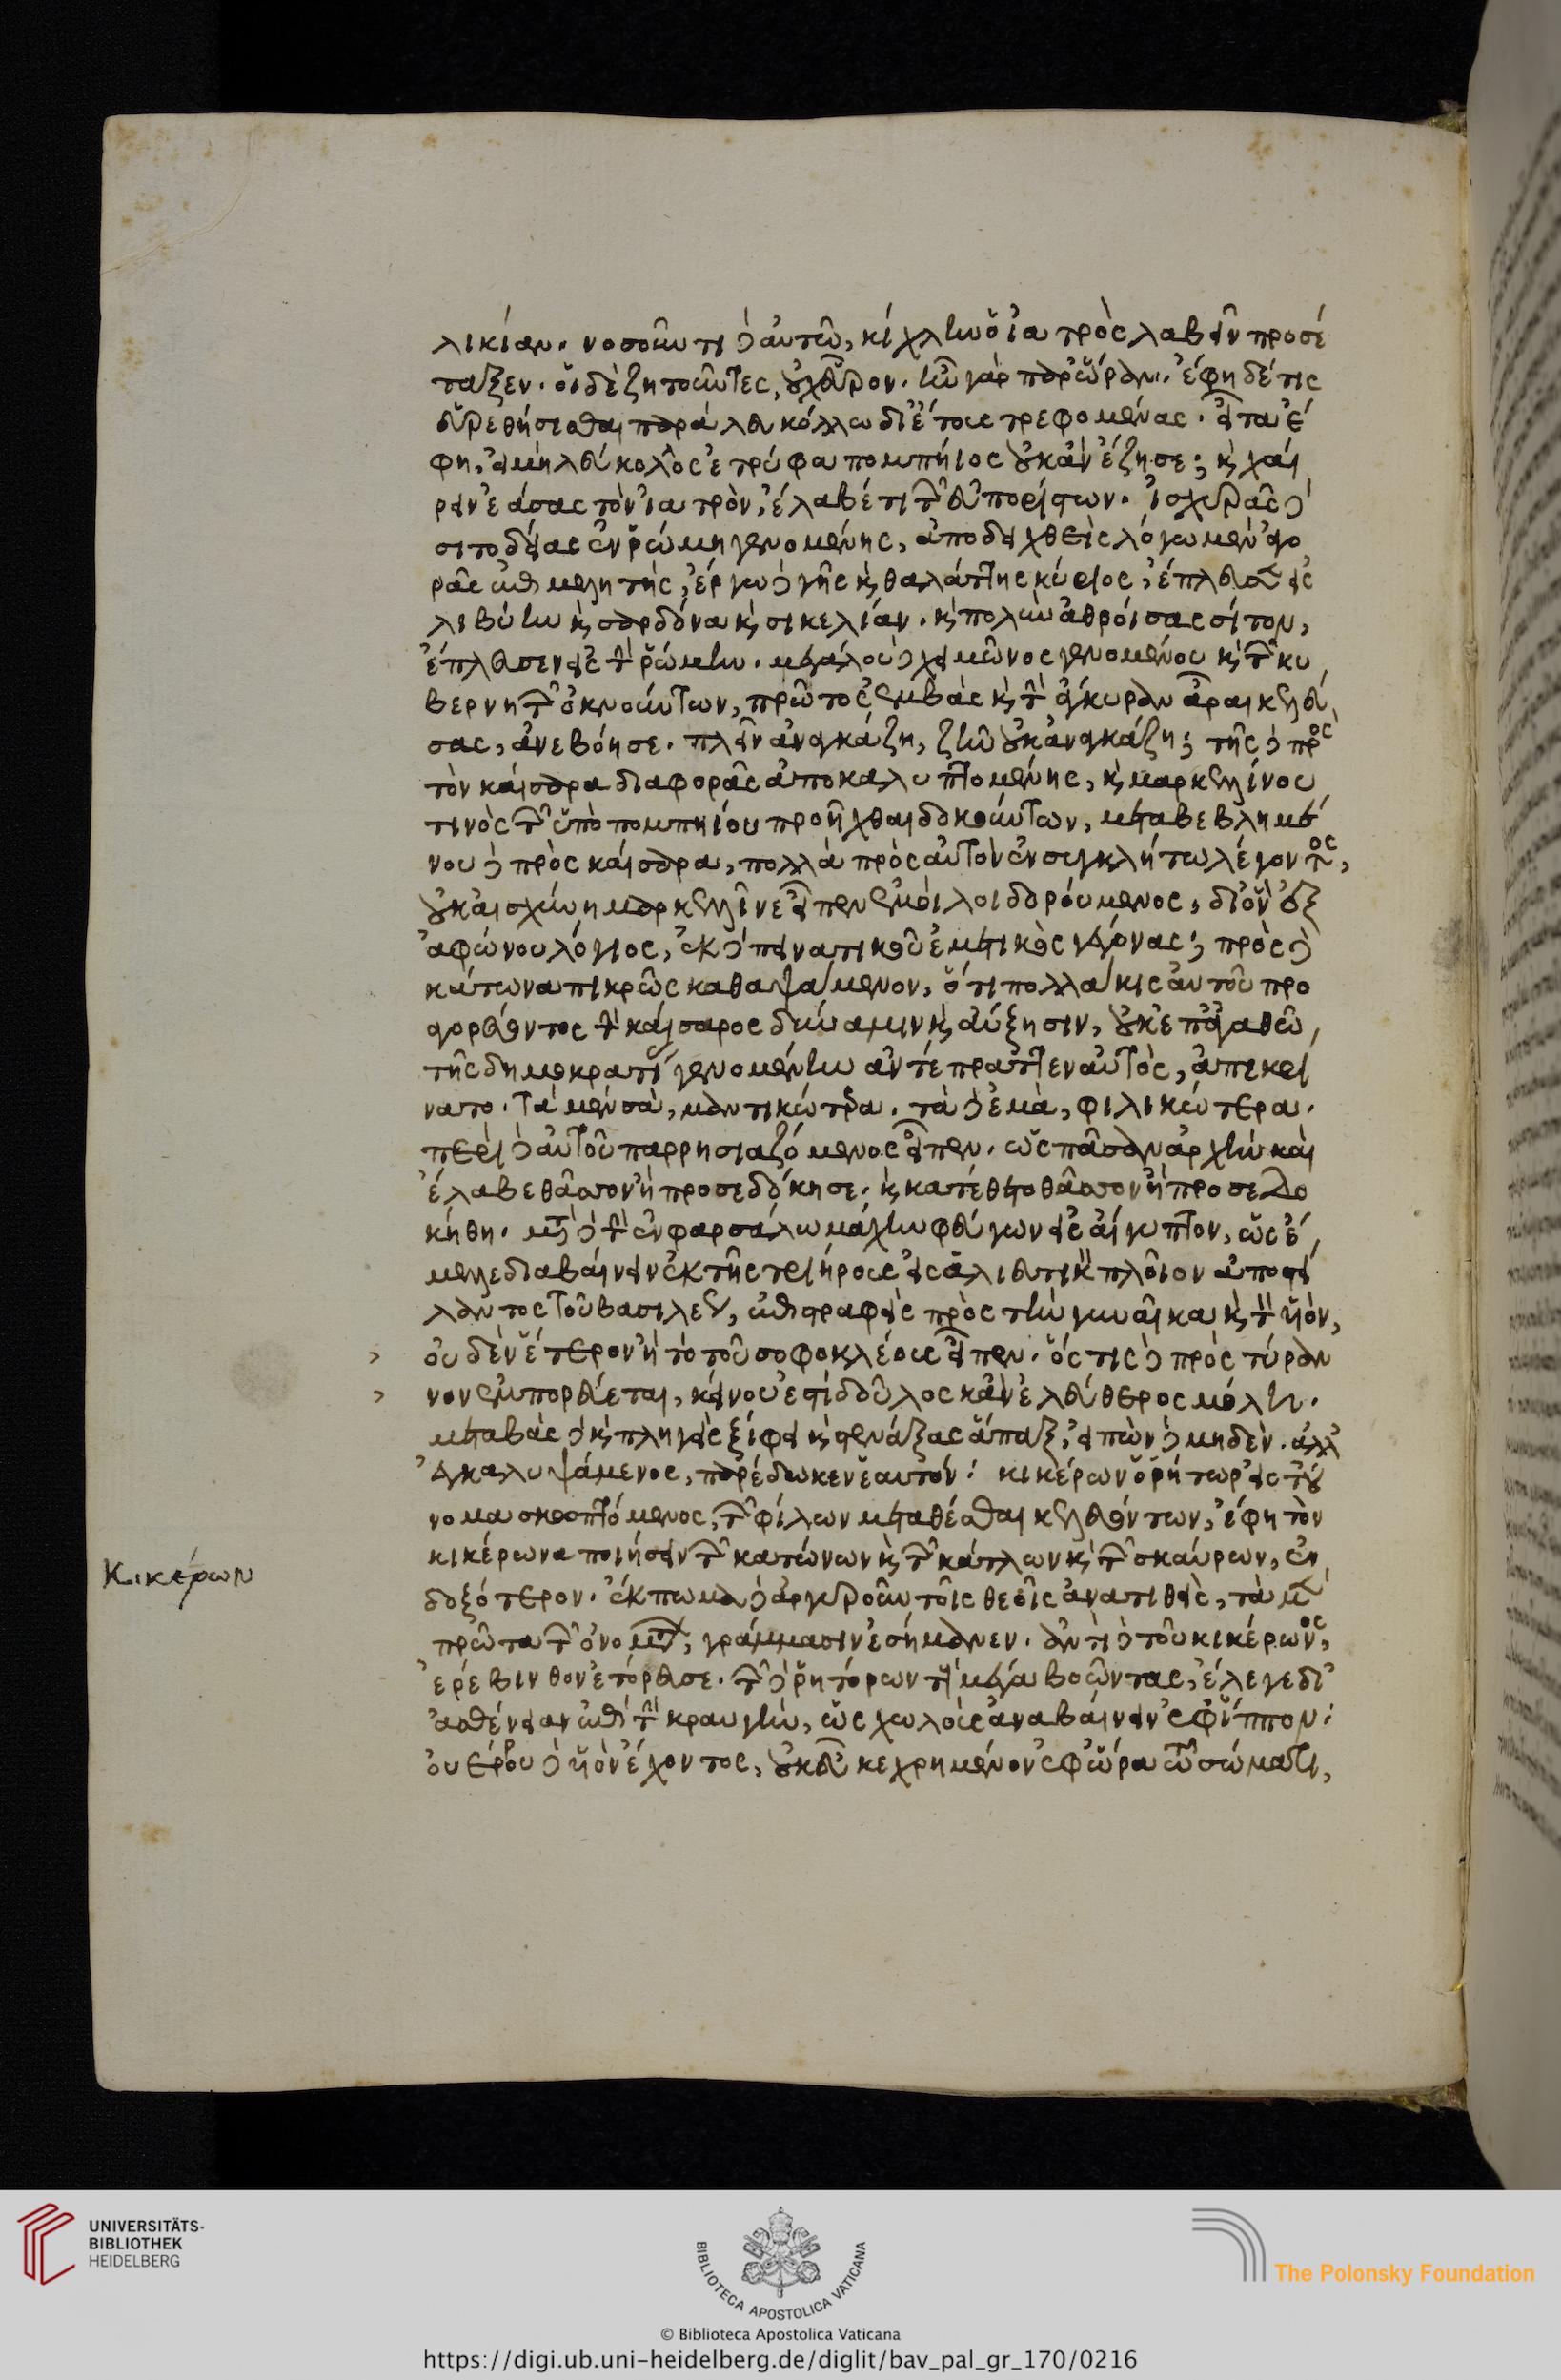 λικίαν. νοσοῦντι δ' αὐτῶ, κίχλην ὁ ἰατρὸς λαβεῖν προσέ
ταξεν. οἱ δὲ ζητοῦντες, οὐχ εὗρον. ἦν γὰρ παρ' ὥραν. ἔφη δέ τις
εὑρεθήσεσθαι παρὰ λευκόλλω δι' ἔτους τρεφομένας. εἶτα ἔ
φη, εἰ μὴ λεύκολλος ἐτρύφα πομπήιος οὐκ ἂν ἔζησε; καὶ χαί
ρειν ἐάσας τὸν ἰατρὸν, ἔλαβέ τι τῶν εὐπορίστων. ἰσχυρᾶς δὲ
σιτοδείας ἐν ῥώμη γενομένης, ἀποδειχθεὶς λόγω μὲν ἀγο
ρᾶς ἐπιμελητὴς, ἔργω δὲ γῆς καὶ θαλάττης κύριος, ἔπλευσεν εἰς
λιβύην καὶ σαρδόνα καὶ σικελίαν. καὶ πολὺν ἀθροίσας σίτον,
ἔπλευσεν εἰς τὴν ῥώμην. μεγάλου δὲ χειμῶνος γενομένου καὶ τῶν κυ
βερνητῶν ὀκνούντων, πρῶτος ἐμβὰς καὶ τὴν ἄγκυραν ἆραι κελεύ
σας, ἀνεβόησε. πλεῖν ἀνάγκάζη, ζῆν οὐκ ἀναγκάζη; τῆς δὲ πρὸς
τὸν καίσαρα διαφορᾶς ἀποκαλυπτομένης, καὶ μαρκελλίνου
τινὸς τῶν ὑπὸ πομπηίου προῆχθαι δοκούντων, μεταβεβλημέ
νου δὲ πρὸς καίσαρα, πολλὰ πρὸς αὐτὸν ἐν συγκλήτω λέγοντος,
οὐκ αἰσχύνη μαρκελλῖνε εἶπεν ἐμοὶ λοιδορούμενος, δι' ὃν ἐξ
ἀφώνου λόγιος, ἐκ δὲ πεινατικοῦ ἐμετικὸς γέγονας; πρὸς δὲ
κάτωνα πικρῶς καθαψάμενον, ὅτι πολλάκις αὐτοῦ προ
αγορεύοντος τὴν καίσαρος δύναμιν καὶ αὔξησιν, οὐκ ἐπ' ἀγαθῶ
τῆς δημοκρατίας γενομένην ἀντέπραττεν αὐτὸς, ἀπεκρί
νατο. τὰ μὲν σὰ, μαντικώτερα. τὰ δ' ἐμὰ, φιλικώτερα.
περὶ δ' αὐτοῦ παρρησιαζόμενος εἶπεν. ὡς πᾶσαν ἀρχὴν καὶ
ἔλαβε θᾶττον ἢ προσεδόκησε. καὶ κατέθετο θᾶττον ἢ προσεδο
κήθη. μετὰ δὲ τὴν ἐν φαρσάλω μάχην φεύγων εἰς αἴγυπτον, ὡς ἔ
μελλε διαβαίνειν ἐκ τῆς τριήρους εἰς ἁλιευτικὸν πλοῖον ἀποστεί
λαντος τοῦ βασιλέως, ἐπιστραφεὶς πρὸς τὴν γυναῖκα καὶ τὸν υἱὸν,
οὐδὲν ἕτερον ἢ τὸ τοῦ σοφοκλέους εἶπεν. ὅς τις δὲ πρὸς τύραν
νον ἐμπορεύεται, κείνου ἐστὶ δοῦλος κἂν ἐλεύθερος μόλη.
μεταβὰς δὲ καὶ πληγεὶς ξίφει καὶ στενάξας ἅπαξ, εἰπὼν δὲ μηδὲν. ἀλλ'
ἐγκαλυψάμενος, παρέδωκεν ἑαυτόν: κικέρων ὁ ῥήτωρ εἰς τοὔ
νομα σκοπτόμενος, τῶν φίλων μεταθέσθαι κελευόντων, ἔφη τὸν
κικέρωνα ποιήσειν τῶν κατώνων καὶ τῶν κάτλων καὶ τῶν σκαύρων, ἐν
δοξότερον. ἔκπωμα δ' ἀργυροῦν τοῖς θεοῖς ἀνατιθεὶς, τὰ μὲν
πρῶτα τῶν ὀνομάτων, γράμμασιν ἐσήμανεν. ἀντὶ δὲ τοῦ κικέρωνος,
ἐρέβινθον ἐτόρευσε. τῶν δὲ ῥητόρων τοὺς μέγα βοῶντας, ἔλεγε δι'
ἀσθένειαν ἐπὶ τὴν κραυγὴν, ὡς χωλοὺς ἀναβαίνειν ἐφ' ἵππον:
οὐέρρου δὲ υἱὸν ἔχοντος, οὐκ εὖ κεχρημένον ἐφ' ὥρα τῶ σώματι,
Κικέρων
UNIVERSITÄTS-
BIBLIOTHEK
HEIDELBERG
BIBLIOTECA APOSTOLICA VATICANA
© Biblioteca Apostolica Vaticana
The Polonsky Foundation
https://digi.ub.uni-heidelberg.de/diglit/bav_pal_gr_170/0216